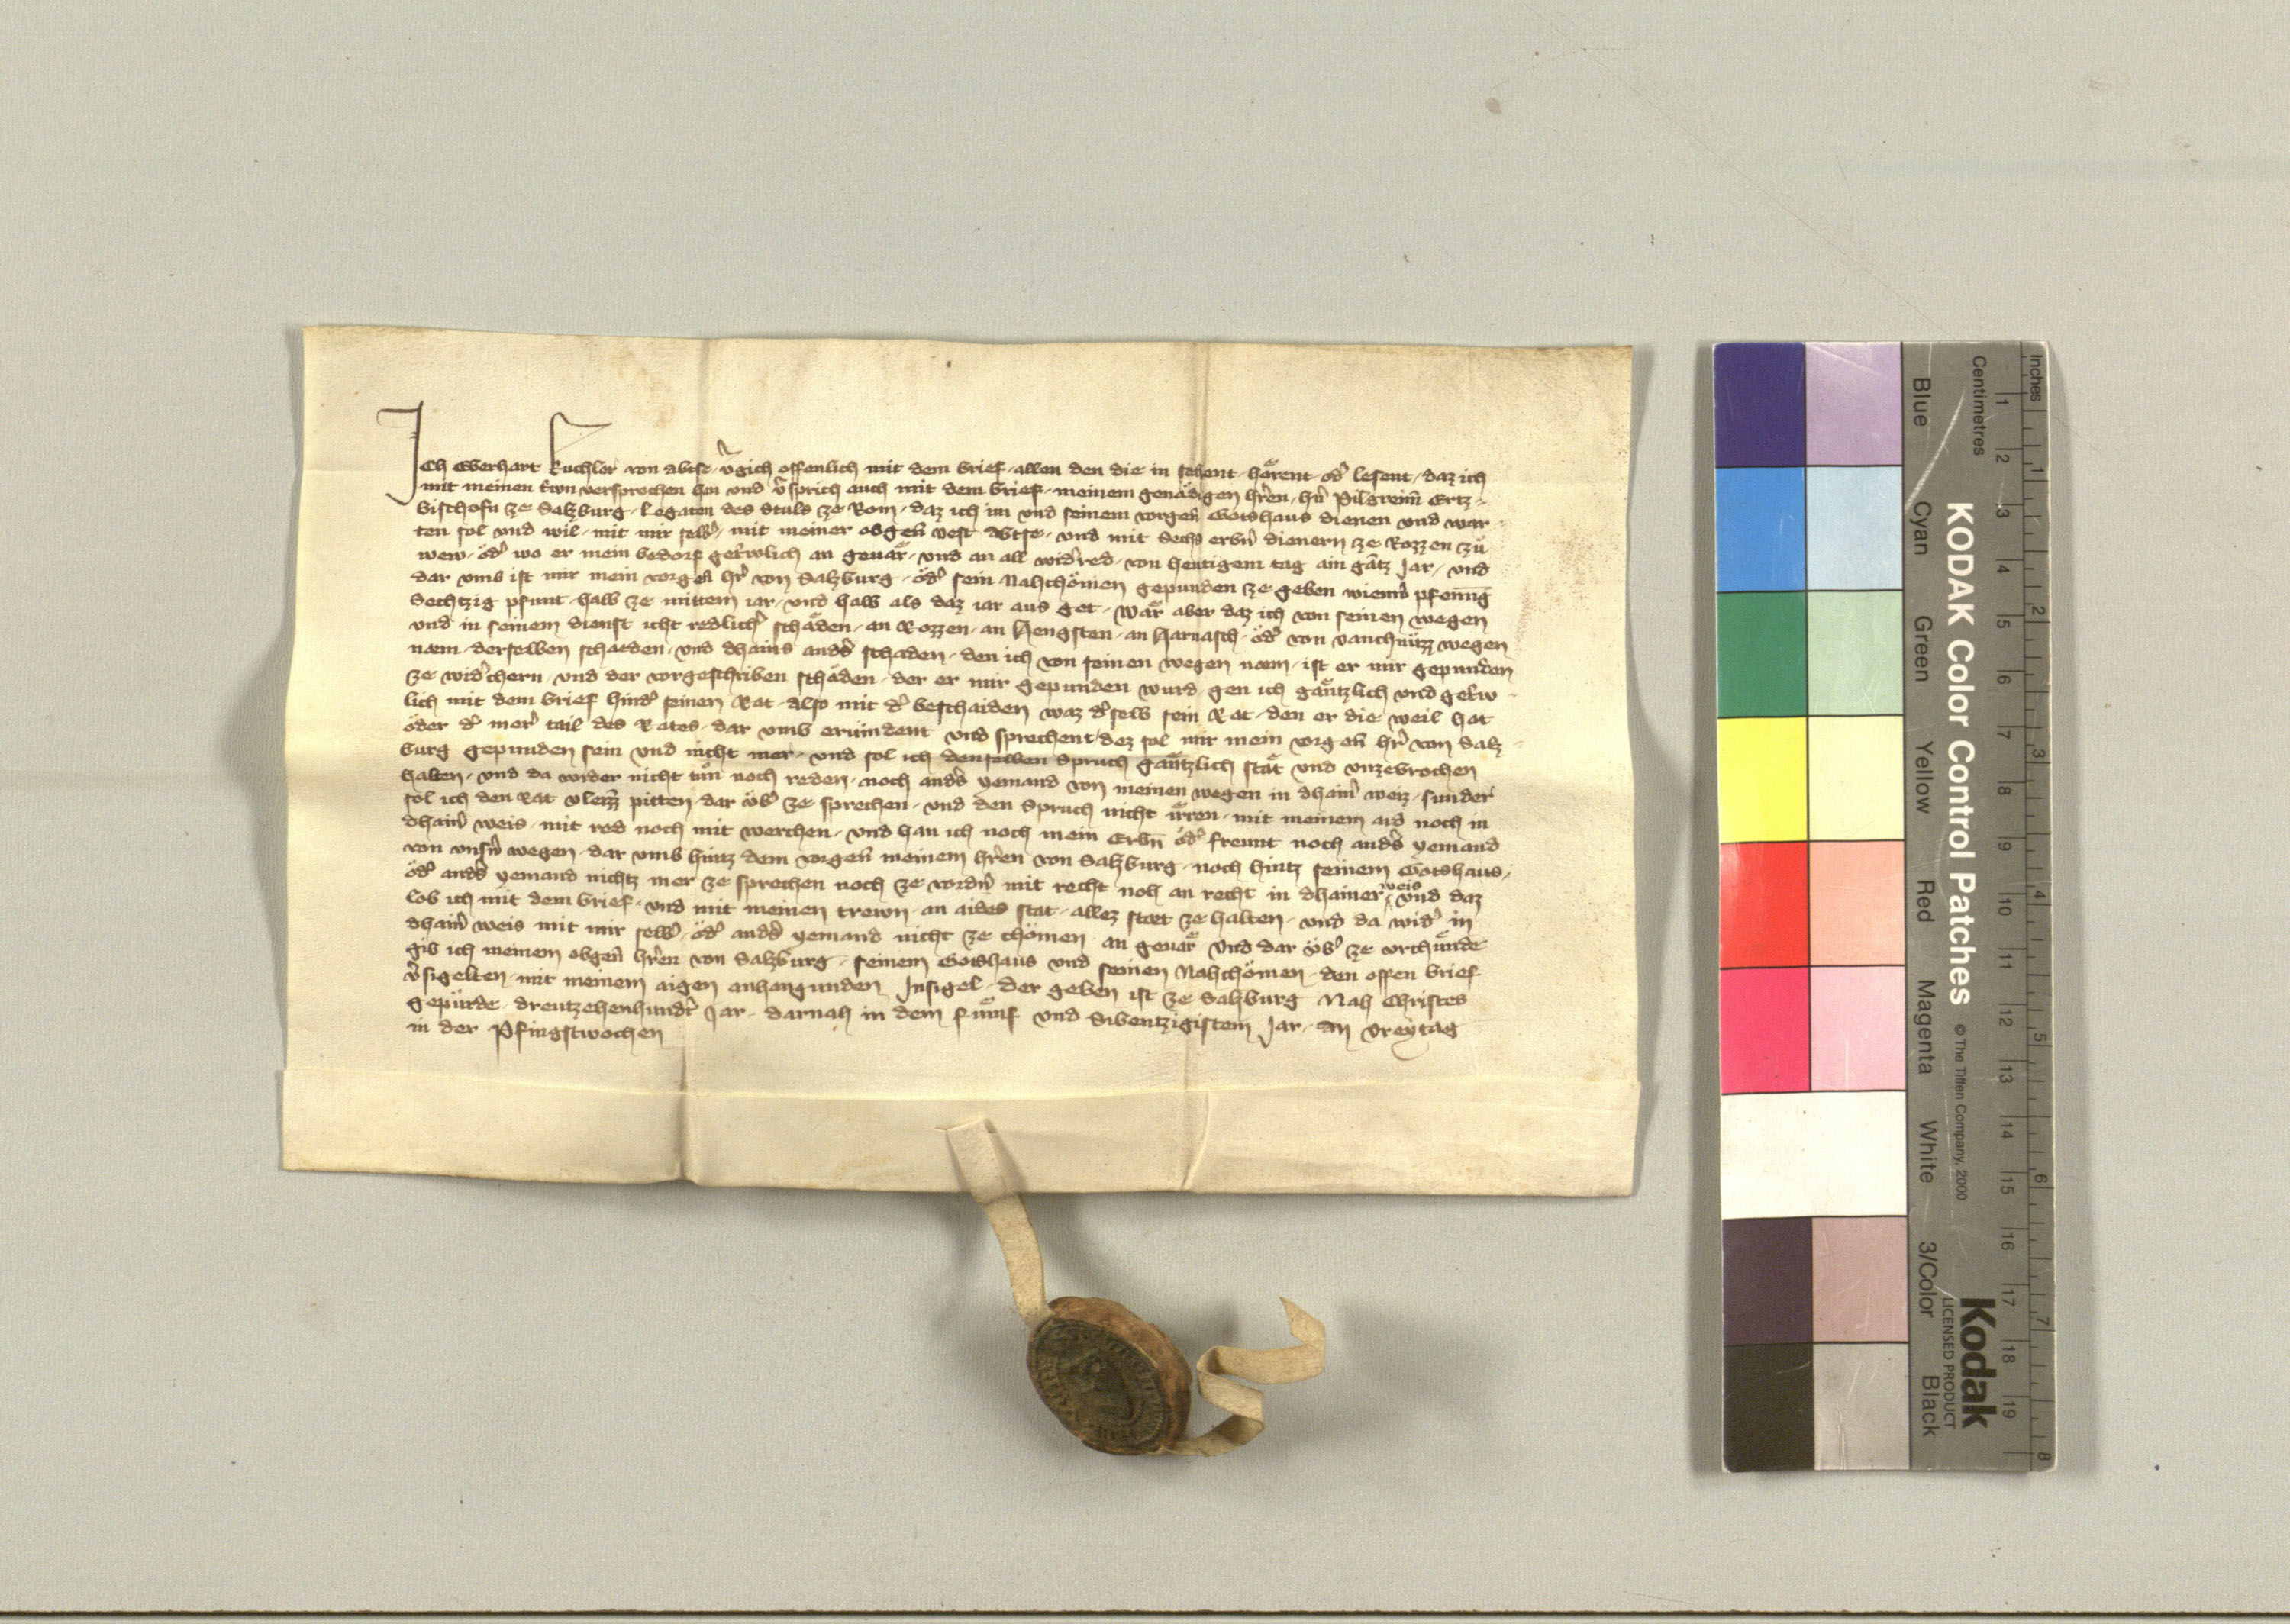 Ich Eberhart Kuchler von Abtse v̂gich offenlich mit dem brief allen den die in sehent hoͤrent od̂ lesent daz ich
mit meinen trwn versprochen han und v̂sprich auch mit dem brief meinem genaͤdigen hr̂en hn̂ Pilgreim̄ Ertz
bischofn ze Salzburg Legaten des Stuls ze Rom daz ich im und seinem vorgen̄ Gotshaus dienen und war
ten sol und wil mit mir selb̂ mit meiner obgen̄ vest Abtse und mit Sechs erbn̂ dienern ze Rozzen zü
wew öd̂ wo er mein bedorf getr̂wlich an geuaͤr und an all wid̂red von heutigem tag ain gātz Jar und
dar vmb ist mir mein vorgen̄ hr̂ von Salzburg öd̂ sein Nahchömen gepunden ze geben wienn̂ pfenīg
Sechtzig pfunt halb ze mittem iar und halb als daz iar aus get waͤr aber daz ich von seinen wegen
und in seinem dienst icht redlicĥ schaͤden an Rozzen an Hengsten an Harnasch öd̂ von vanchnüzz wegen
naem derselben schaeden und dhains and̂s schaden den ich von seinen wegen naem ist er mir gepunden
ze wid̂chern und der vorgeschriben schäden der er mir gepunden wurd gen ich gaͤntzlich und getr̂w
lich mit dem brief hind̂ seinen Rat also mit d̂ beschaiden waz d̂selb sein Rat den er die weil hat
öder d̂ mer̂ tail des Rates dar vmb eruindent und sprechent dez sol mir mein vorgen̄ hr̂ von Salz
burg gepunden sein und nicht mer und sol ich denselben Spruch gaͤntzlich staͤt und unzebrochen
halten und da wider nicht tuͤn noch reden noch and̂s yemand von meinen wegen in dhain̂ weiz sunder
sol ich den Rat pitten dar üb̂ ze sprechen und den Spruch nicht irren mit meinem aid noch in
dhain̂ weis mit red noch mit werchen und han ich noch mein Erbn̄ öd̂ freunt noch and̂s yemand
von unsn̂ wegen dar vmb hintz dem vorgen̄ meinem hr̂en von Salzburg noch hintz seinem Gotshaus
öd̂ and̂s yemand nichtz mer ze sprechen noch ze vordn̂ mit recht noh an recht in dhainer weis und daz
lob ich mit dem brief und mit meinen trewn an aides stat allez staet ze halten und da wid̂ in
dhain̂ weis mit mir selb̂ öd̂ and̂s yemand nicht ze chömen an geuaͤr und dar üb̂ ze vrchuͤnde
gib ich meinem obgen̄ hr̂en von Salzburg seinem Gotshaus und seinen Nahchömen den offen brief
v̂sigelten mit meinem aigen anhangunden Insigel Der geben ist ze Salzburg Nah Christes
gepürde dreutzehenhundr̂t Jar darnah in dem fuͤnf und Sibentzigistem Jar an vreytag
in der Pfingstwochen
KODAK Color Control Patches
© The Tiffen Company, 2000
Kodak
LICENSED PRODUCT
Blue Cyan Green Yellow Red Magenta White 3/Color Black
Inches 1 2 3 4 5 6 7 8
Centimetres 1 2 3 4 5 6 7 8 9 10 11 12 13 14 15 16 17 18 19